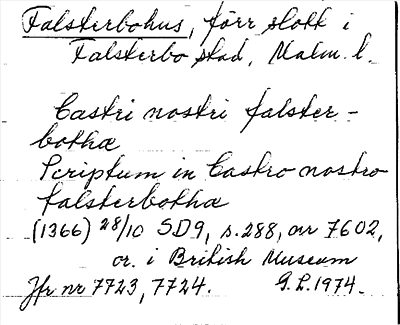 Falsterbohus, förr slott i
Falsterbo stad, Malm. l.
Castri nostri falster-
bothæ
Scriptum in Castro nostro
falsterbothæ
(1366) 28/10 SD9, s. 288, nr 7602,
or. i British Museum
Jfr nr 7723, 7724. G.L. 1974.